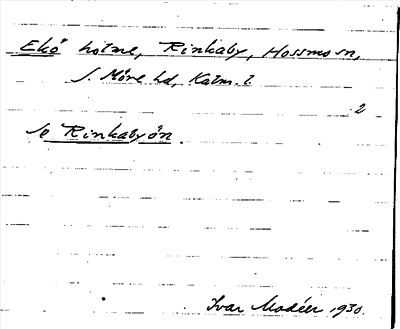 Ekö holme, Rinkaby, Hossmo sn,
S. Möre hd, Kalm. l
2
Se Rinkabyön.
Ivar Modéer 1930.